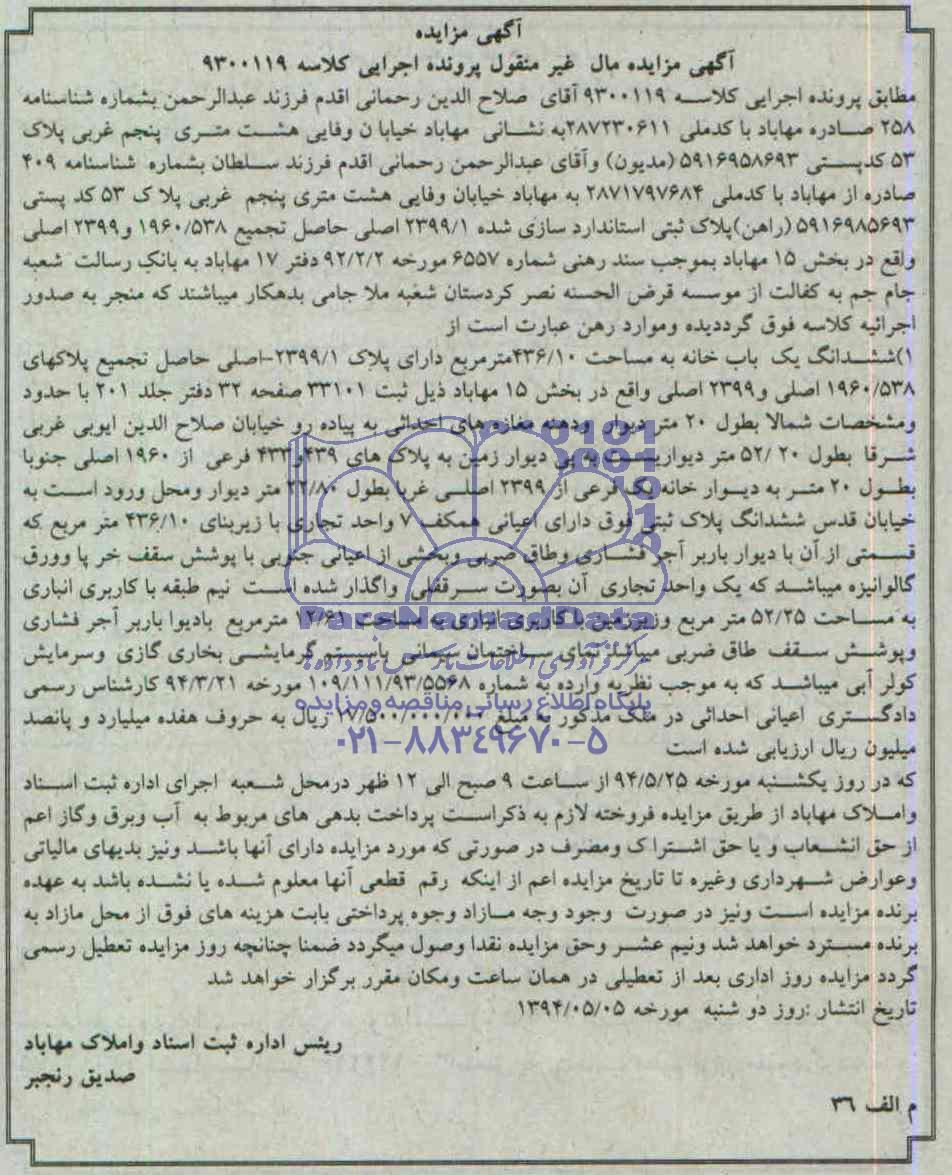 آگهی مزایده
آگهی مزایده مال غیر منقول پرونده اجرایی کلاسه ۹۳۰۰۱۱۹
مطابق پرونده اجرایی کلاسه ۹۳۰۰۱۱۹ آقای صلاح الدین رحمانی اقدم فرزند عبدالرحمن بشماره شناسنامه
۲۵۸ صادره مهاباد با کدملی ۲۸۷۲۳۰۶۱۱به نشانی مهاباد خیابان وفایی هشت متری پنجم غربی پلاک
۵۳ کدپستی ۵۹۱۶۹۵۸۶۹۳ (مدیون) وآقای عبدالرحمن رحمانی اقدم فرزند سلطان بشماره شناسنامه ۴۰۹
صادره از مهاباد با کدملی ۲۸۷۱۷۹۷۶۸۴ به مهاباد خیابان وفایی هشت متری پنجم غربی پلاک ۵۳ کد پستی
۵۹۱۶۹۸۵۶۹۳ (راهن)پلاک ثبتی استاندارد سازی شده ۲۳۹۹/۱ اصلی حاصل تجمیع ۱۹۶۰/۵۳۸ و۲۳۹۹ اصلی
واقع در بخش ۱۵ مهاباد بموجب سند رهنی شماره ۶۵۵۷ مورخه ۹۲/۲/۲ دفتر ۱۷ مهاباد به بانک رسالت شعبه
جام جم به کفالت از موسسه قرض الحسنه نصر کردستان شعبه ملا جامی بدهکار میباشند که منجر به صدور
اجرائیه کلاسه فوق گرددیده وموارد رهن عبارت است از
۱)ششدانگ یک باب خانه به مساحت ۴۳۶/۱۰مترمربع دارای پلاک ۲۳۹۹/۱-اصلی حاصل تجمیع پلاکهای
۱۹۶۰/۵۳۸ اصلی و۲۳۹۹ اصلی واقع در بخش ۱۵ مهاباد ذیل ثبت ۳۳۱۰۱ صفحه ۳۲ دفتر جلد ۲۰۱ با حدود
ومشخصات شمالا بطول ۲۰ متر دیوار ودهنه مغازه های احداثی به پیاده رو خیابان صلاح الدین ایوبی غربی
شرقا بطول ۵۲/۲۰ متر دیواریست به پی دیوار زمین به پلاک های ۴۳۹و۴۳۳ فرعی از ۱۹۶۰ اصلی جنوبا
بطول ۲۰ متر به دیوار خانه یک فرعی از ۲۳۹۹ اصلی غربا بطول ۲۲/۸۰ متر دیوار ومحل ورود است به
خیابان قدس ششدانگ پلاک ثبتی فوق دارای اعیانی همکف ۷ واحد تجاری با زیربنای ۴۳۶/۱۰ متر مربع که
قسمتی از آن با دیوار باربر آجر فشاری وطاق ضربی وبخشی از اعیانی جنوبی با پوشش سقف خر پا وورق
گالوانیزه میباشد که یک واحد تجاری آن بصورت سرقفلی واگذار شده است نیم طبقه با کاربری انباری
به مساحت ۵۲/۲۵ متر مربع وزیرزمین با کاربری انباری به مساحت ۱۲/۶۱ مترمربع بادیوا باربر آجر فشاری
وپوشش سقف طاق ضربی میباشد نمای ساختمان سیمانی باسیستم گرمایشی بخاری گازی وسرمایش
کولر آبی میباشد که به موجب نظریه وارده به شماره ۱۰۹/۱۱۱/۹۳/۵۵۶۸ مورخه ۹۴/۳/۲۱ کارشناس رسمی
دادگستری اعیانی احداثی در ملک مذکور به مبلغ ۱۷/۵۰۰/۰۰۰/۰۰۰ ریال به حروف هفده میلیارد و پانصد
میلیون ریال ارزیابی شده است
که در روز یکشنبه مورخه ۹۴/۵/۲۵ از ساعت ۹ صبح الی ۱۲ ظهر درمحل شعبه اجرای اداره ثبت اسناد
واملاک مهاباد از طریق مزایده فروخته لازم به ذکراست پرداخت بدهی های مربوط به آب وبرق وگاز اعم
از حق انشعاب و یا حق اشتراک ومصرف در صورتی که مورد مزایده دارای آنها باشد ونیز بدیهای مالیاتی
وعوارض شهرداری وغیره تا تاریخ مزایده اعم از اینکه رقم قطعی آنها معلوم شده یا نشده باشد به عهده
برنده مزایده است ونیز در صورت وجود وجه مازاد وجوه پرداختی بابت هزینه های فوق از محل مازاد به
برنده مسترد خواهد شد ونیم عشر وحق مزایده نقدا وصول میگردد ضمنا چنانچه روز مزایده تعطیل رسمی
گردد مزایده روز اداری بعد از تعطیلی در همان ساعت ومکان مقرر برگزار خواهد شد
تاریخ انتشار :روز دو شنبه مورخه ۱۳۹۴/۰۵/۰۵
رئیس اداره ثبت اسناد واملاک مهاباد
صدیق رنجبر
م الف ۳۶
ParsNamadData
مرکز فرآوری اطلاعات پارس نماد داده ها
پایگاه اطلاع رسانی مناقصه و مزایده
۰۲۱-۸۸۳۴۹۶۷۰-۵